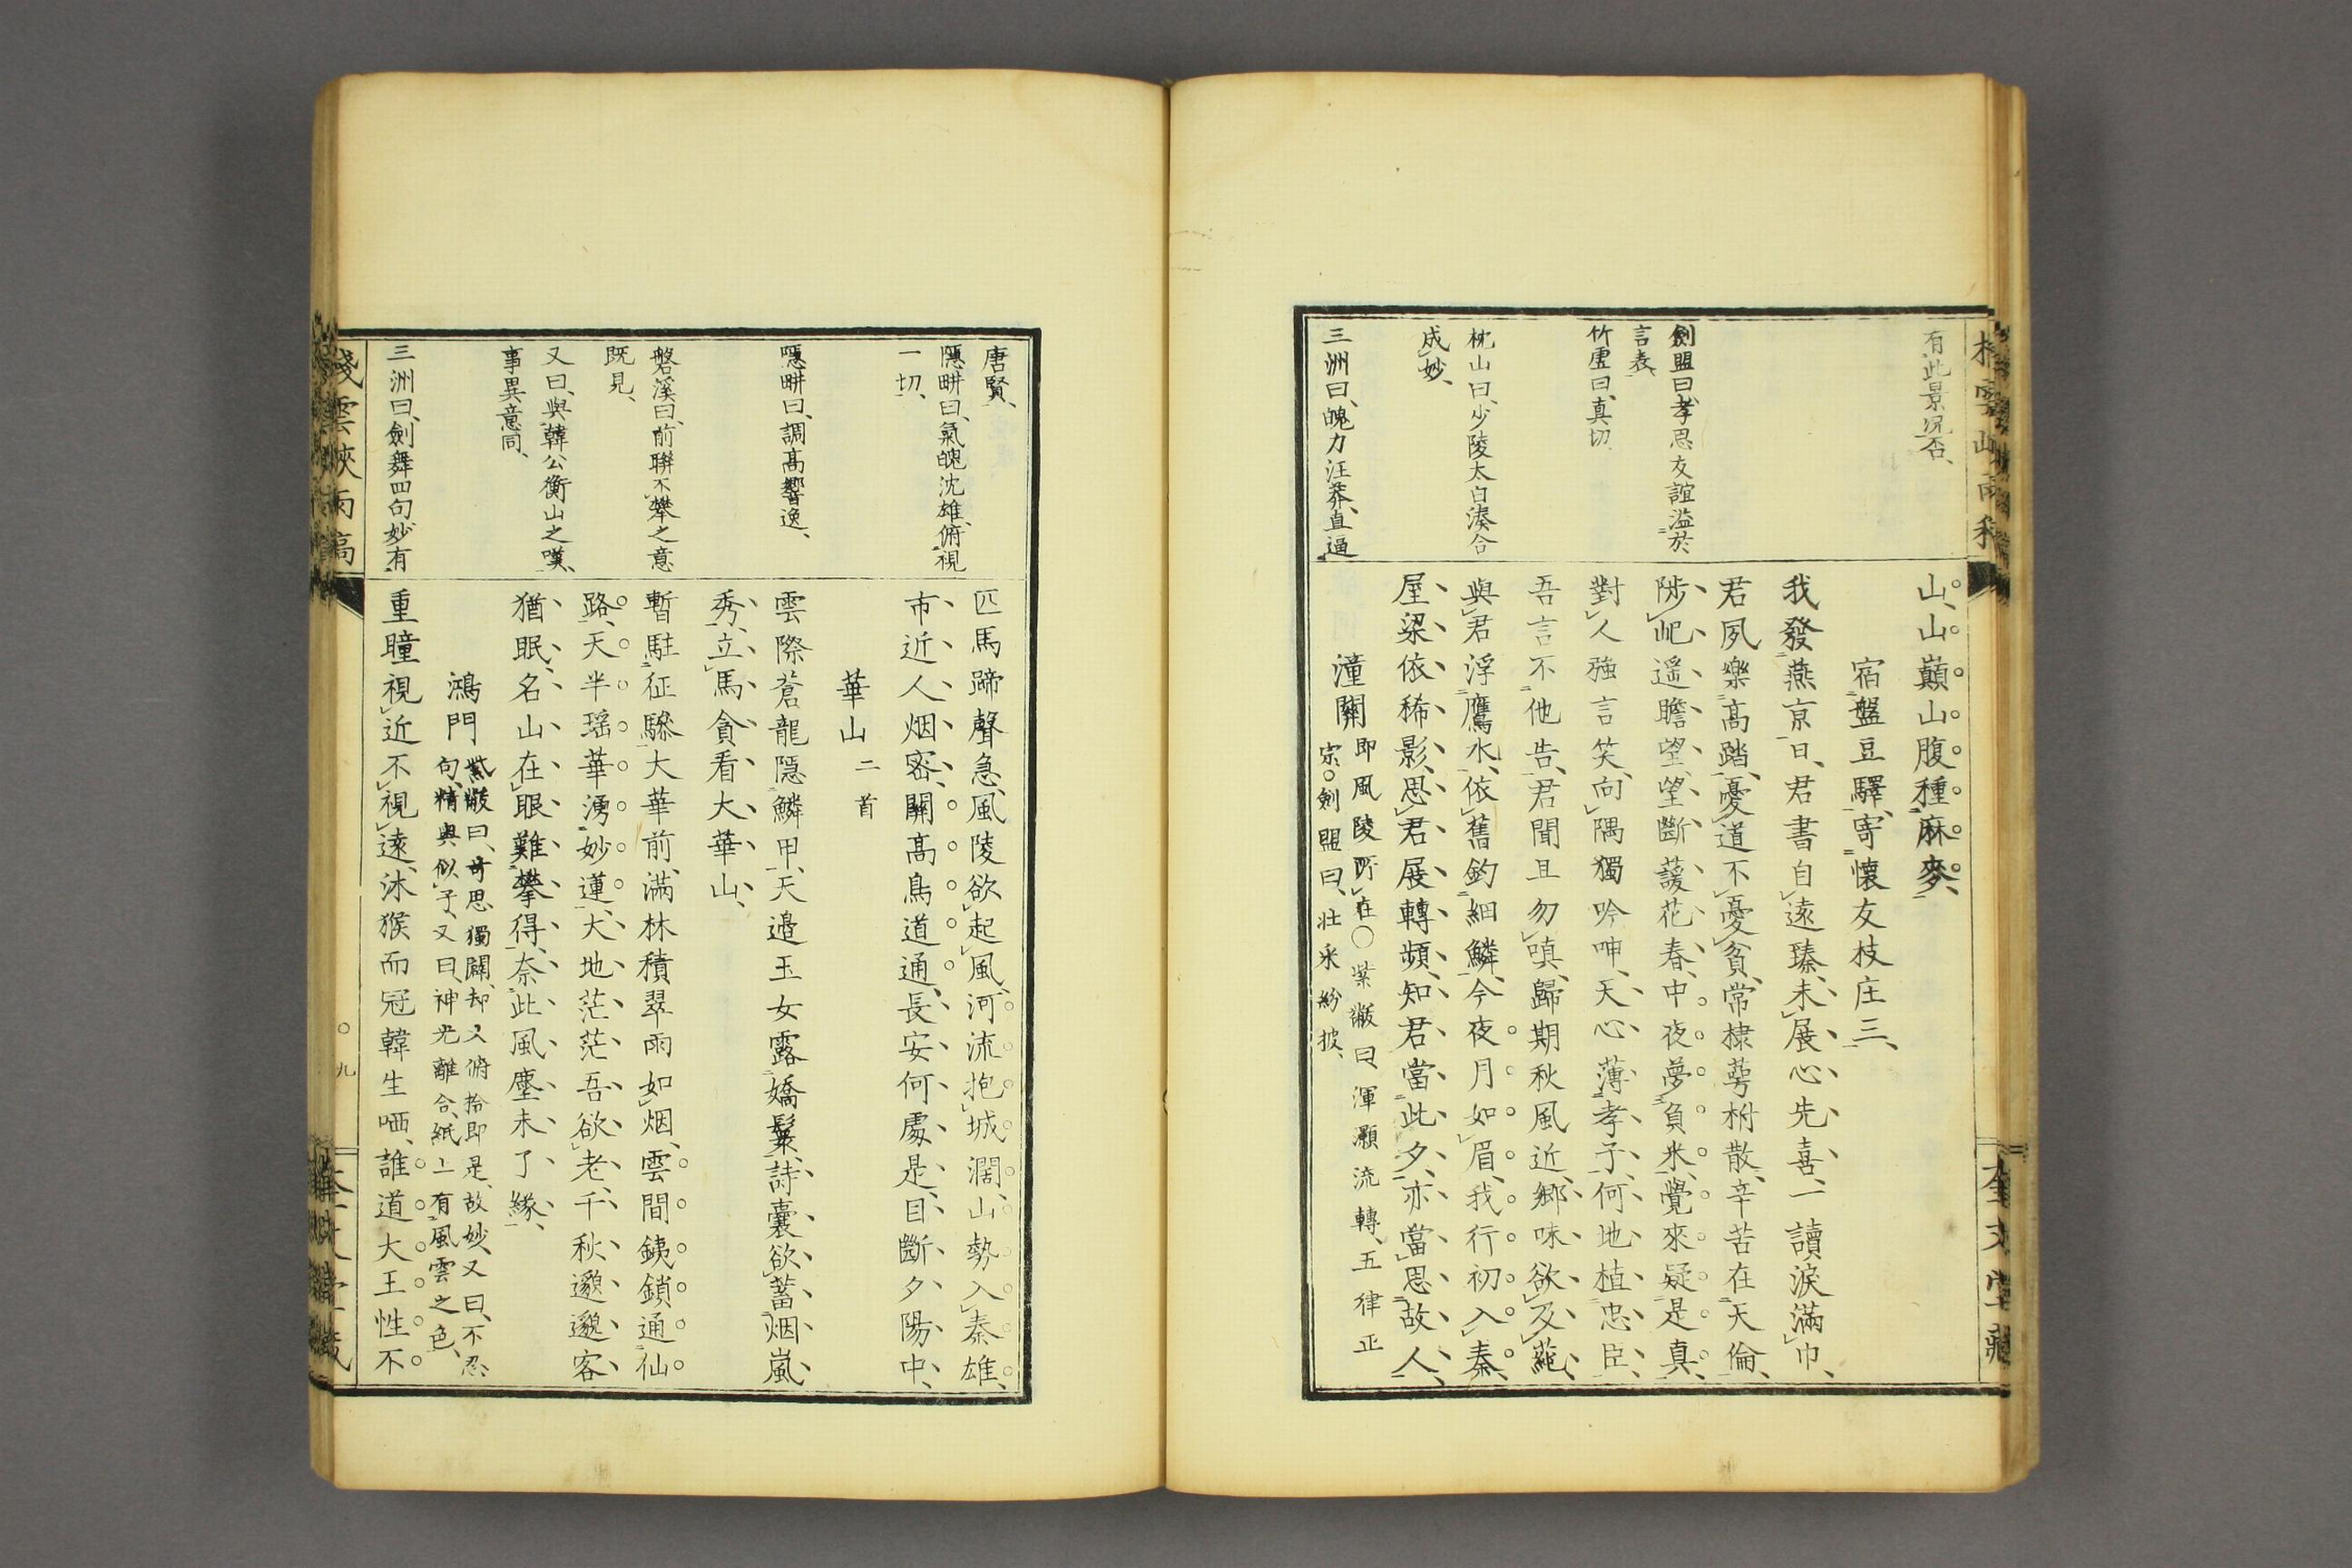 有此景況否、
劍盟曰、孝思友誼溢於
言表、
竹雪曰、真切
枕山曰、少陵太白湊合
成妙、
三洲曰、魄力汪莽、直逼
山、山巔山腹種麻麥、
宿盤豆驛、寄懷友枝庄三、
我發燕京日、君書自遠臻、未展心先喜、一讀淚滿巾、
君夙樂高踏、憂道不憂貧、常棣萼柎散、辛苦在天倫、
陟屺遥瞻望、望斷諼花春、中夜夢負米、覺來疑是真、
對人強言笑、向隅獨吟呻、天心薄孝子、何地植忠臣、
吾言不他告、君聞且勿嗔、歸期秋風近、鄉味欲及蓴、
與君浮鷹水、依舊釣細鱗、今夜月如眉、我行初入秦、
屋梁依稀影、思君展轉頻、知君當此夕、亦當思故人、
潼關
即風陵所在○紫巖曰、渾灝流轉、五律正
宗○劍盟曰、壯采紛披、
唐賢、
隱畊曰、氣魄沈雄、俯視
一切、
隱畊曰、調高響逸、
磐溪曰、前聯不攀之意
既見、
又曰、與韓公衡山之嘆、
事異意同、
三洲曰、劍舞四句妙有
匹馬蹄聲急、風陵欲起風、河流抱城濶、山勢入秦雄、
市近人烟密、關高鳥道通、長安何處是、目斷夕陽中、
華山 二首
雲際蒼龍隱鱗甲、天邉玉女露嬌鬟、詩囊欲蓄烟嵐
秀、立馬貪看大華山、
暫駐征驂大華前、滿林積翠雨如烟、雲間銕鎖通仙
路、天半瑶華湧妙蓮、大地茫茫吾欲老、千秋邈邈客
猶眠、名山在眼難攀得、奈此風塵未了緣、
鴻門
紫巖曰、奇思獨闢、却又俯拾即是、故妙、又曰、不忍
句、精與似子、又曰、神光離合、紙上有風雲之色、
重瞳視近不視遠、沐猴而冠韓生哂、誰道大王性不
棧雲峽雨稿
○九